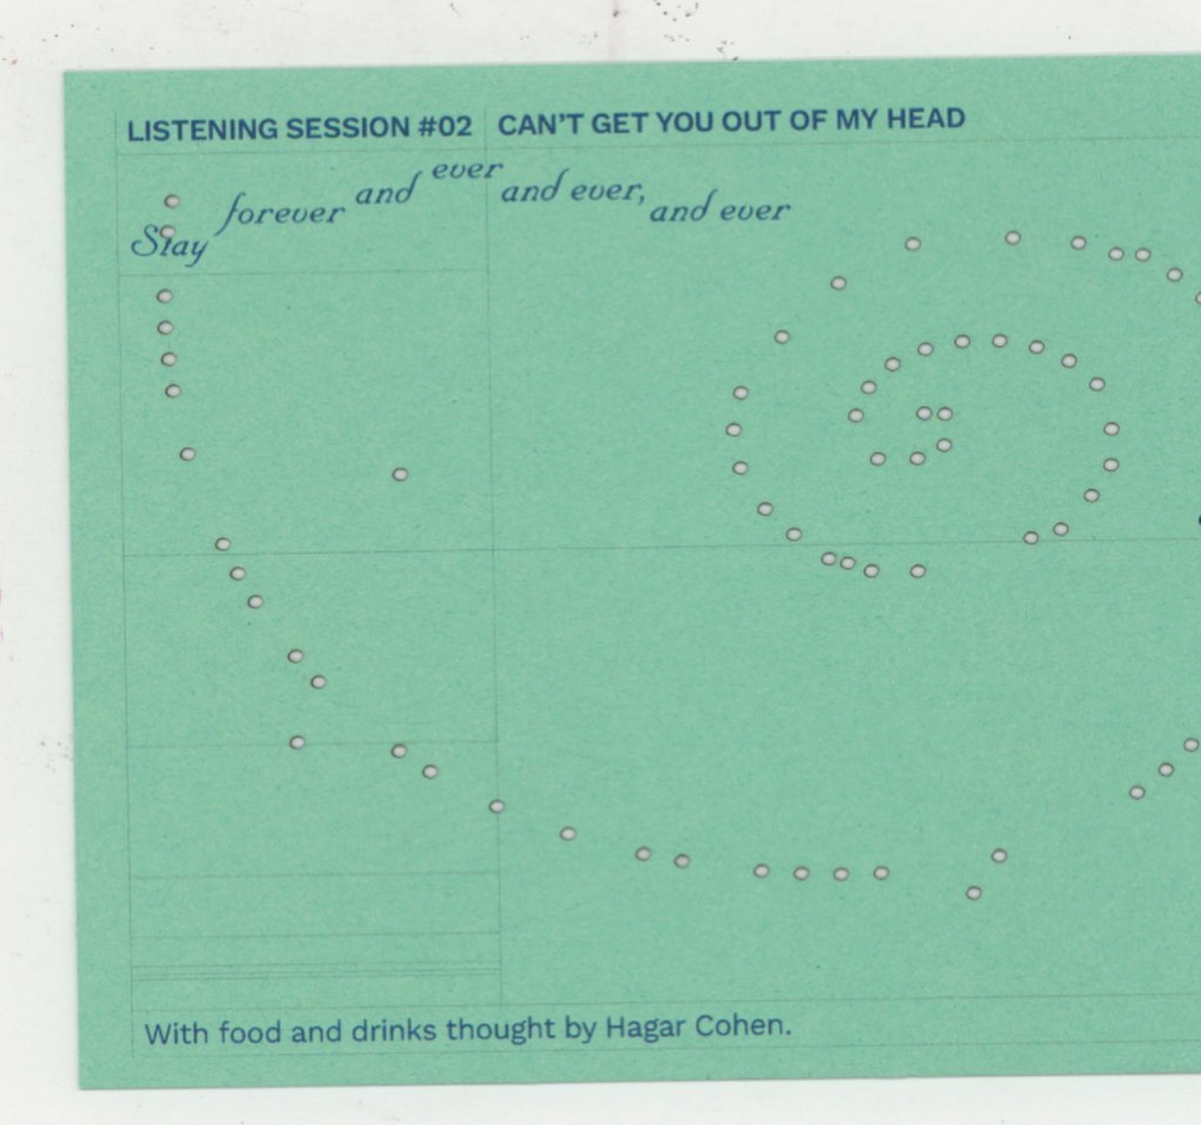 LISTENING SESSION #02 CAN'T GET YOU OUT OF MY HEAD
Stay forever and ever and ever, and ever
With food and drinks thought by Hagar Cohen.